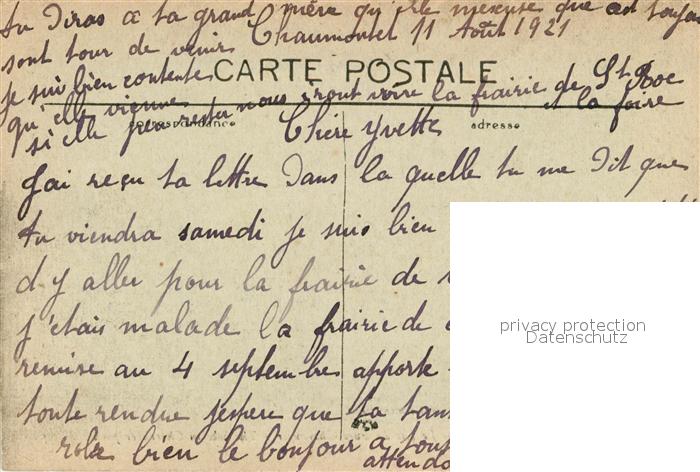 tu Diras a ta grand mère qu'elle mexcuse que cest toujou
sont tour de venir Chaumontel 11 Août 1921
je suis bien contente CARTE POSTALE
qu'elle vienne nous iront voire la frairie de St Roc
si elle peu rester et la foire
Correspondance Chère Yvette adresse
J'ai reçu ta lettre Dans la quelle tu me Dit que
tu viendra samedi je suis bien
d-y aller pour la frairie de
j'etais malade la frairie de
remise au 4 septembre apporte
toute rendue jespere que ta tan
robe bien le bonjour a tous
attendo
privacy protection
Datenschutz